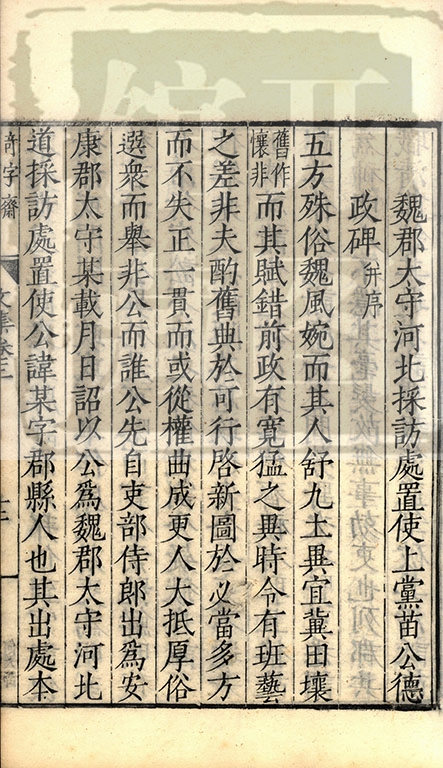 魏郡太守河北採訪處置使上黨苗公德
政碑并序
五方殊俗魏風婉而其人舒九土異宜冀田壤
舊作懷非而其賦錯前政有寬猛之異時令有班藝
之差非夫酌舊典於可行啓新圖於必當多方
而不失正一貫而或從權曲成更人大抵厚俗
選衆而舉非公而誰公先自吏部侍郎出爲安
康郡太守某載月日詔以公爲魏郡太守河北
道採訪處置使公諱某字郡縣人也其出處本
奇字齋
文集卷三
十三